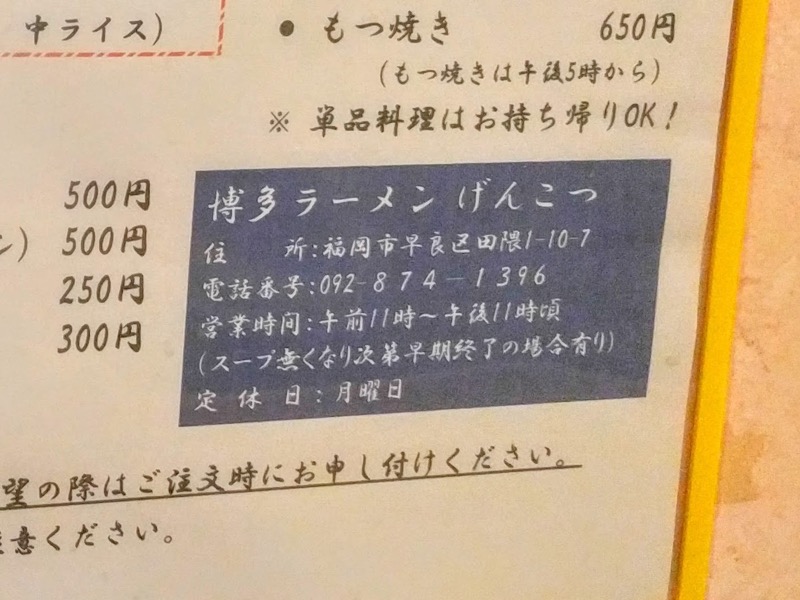 中ライス)
● もつ焼き 650円
(もつ焼きは午後5時から)
※ 単品料理はお持ち帰りOK!
500円
) 500円
250円
300円
博多ラーメン げんこつ
住 所:福岡市早良区田隈1-10-7
電話番号:092-874-1396
営業時間:午前11時~午後11時頃
(スープ無くなり次第早期終了の場合有り)
定 休 日:月曜日
望の際はご注文時にお申し付けください。
意ください。